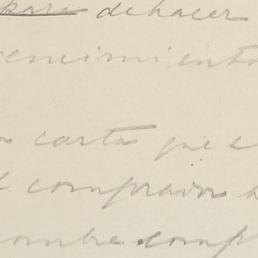 para dehacer
encimiento
carta que e
comprador
ombre comp